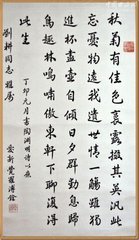 秋菊有佳色裛露掇其英汎此
忘憂物遠我遺世情一觴雖獨
進杯盡壺自傾日夕群動息歸
鳥趨林鳴嘯傲東軒下聊復得
此生 丁卯元月書陶淵明詩以應
劉耕同志雅属 愛新覺羅溥